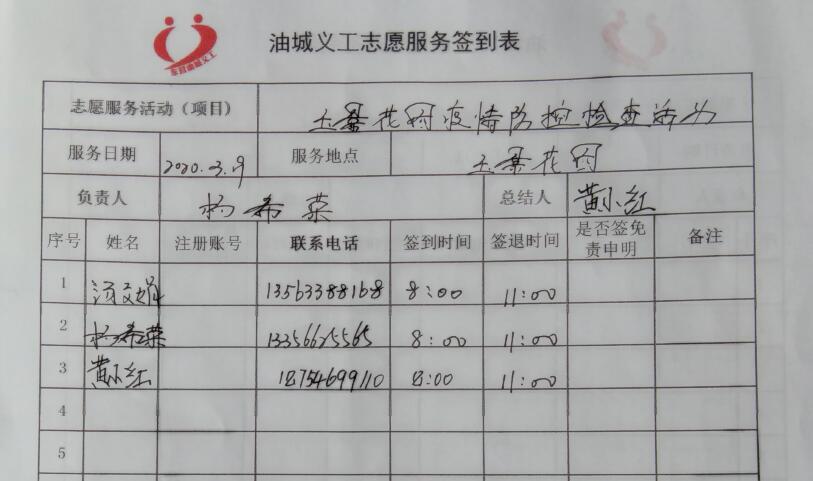 油城义工志愿服务签到表
志愿服务活动（项目） 土景花园疫情防控检查活动
服务日期 2020.3.9 服务地点 土景花园
负责人 杨希荣 总结人 黄小红
序号 姓名 注册账号 联系电话 签到时间 签退时间 是否签免责申明 备注
1 13563388168 8:00 11:00
2 杨希荣 13356625565 8:00 11:00
3 黄小红 18754699110 8:00 11:00
4
5